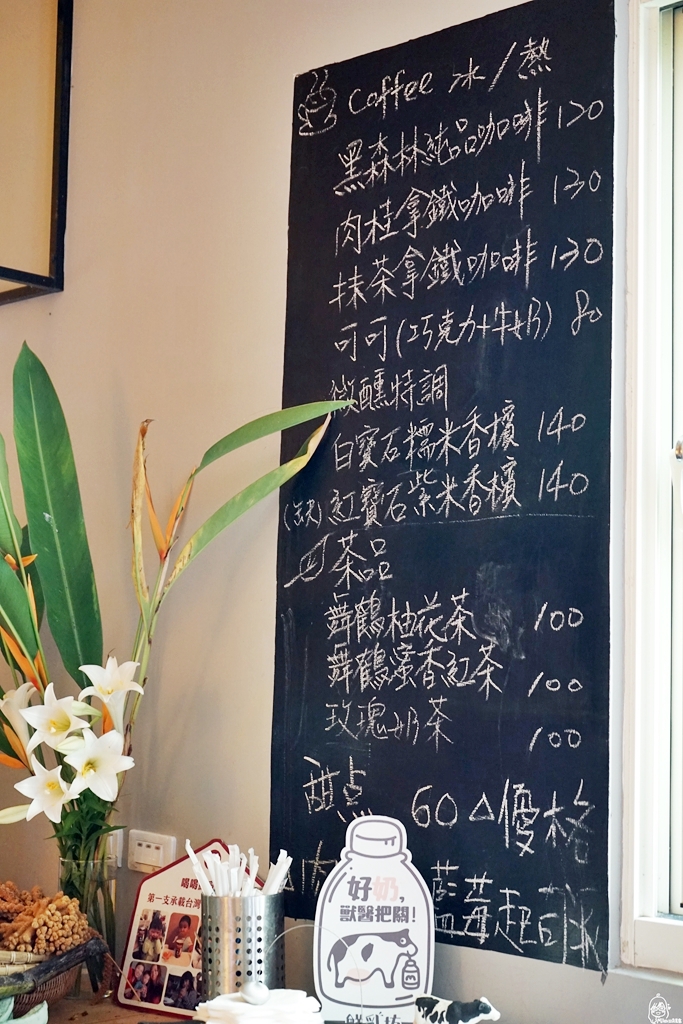 Coffee 冰/熱
黑森林純品咖啡 120
肉桂拿鐵咖啡 130
抹茶拿鐵咖啡 130
可可(巧克力+牛奶) 80
微醺特調
白寶石糯米香檳 140
(缺)紅寶石紫米香檳 140
茶品
舞鶴柚花茶 100
舞鶴蜜香紅茶 100
玫瑰奶茶 100
甜点 60 △優格
△肉
藍莓起司
喝喝
第一支承載台灣
好奶,
獸醫把關!
鮮乳坊